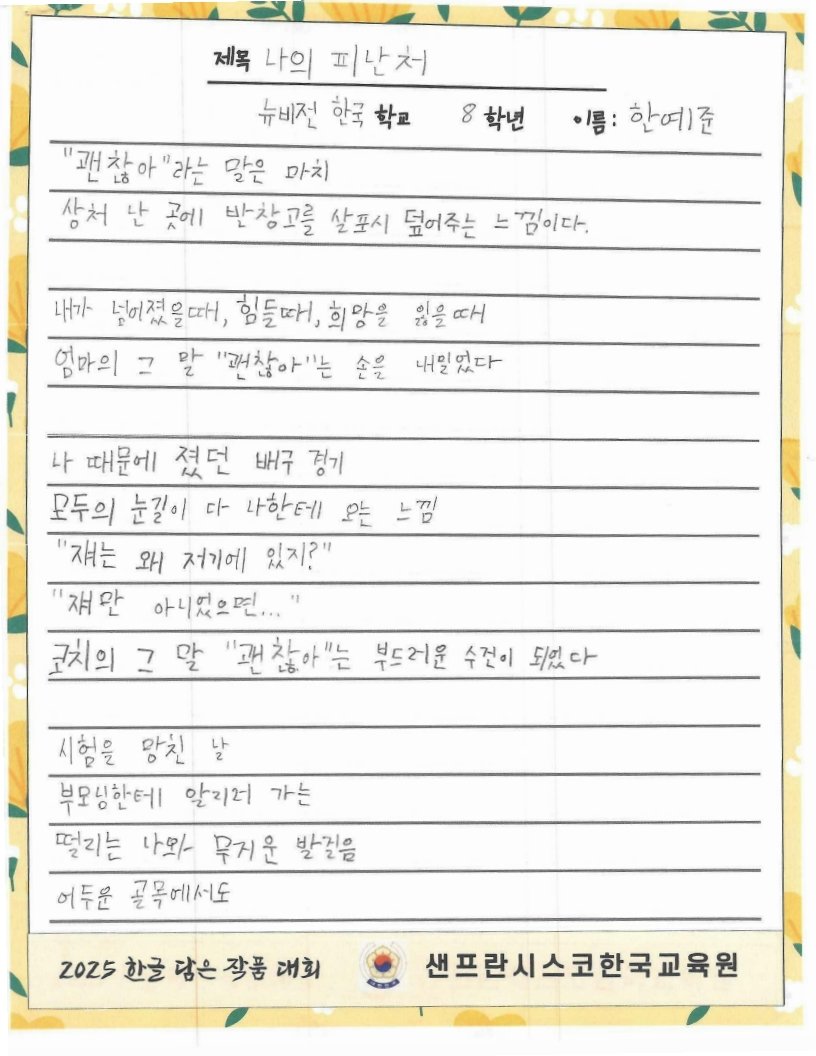 제목 나의 피난처
뉴비전 한국 학교 8 학년 이름: 한예준
"괜찮아"라는 말은 마치
상처 난 곳에 반창고를 살포시 덮어주는 느낌이다.
내가 넘어졌을때, 힘들때, 희망을 잃을때
엄마의 그 말 "괜찮아"는 손을 내밀었다
나 때문에 졌던 배구 경기
모두의 눈길이 다 나한테 오는 느낌
"쟤는 왜 저기에 있지?"
"쟤만 아니었으면..."
코치의 그 말 "괜찮아"는 부드러운 수건이 되었다
시험을 망친 날
부모님한테 알리러 가는
떨리는 나와 무거운 발걸음
어두운 골목에서도
2025 한글 담은 작품 대회 샌프란시스코한국교육원